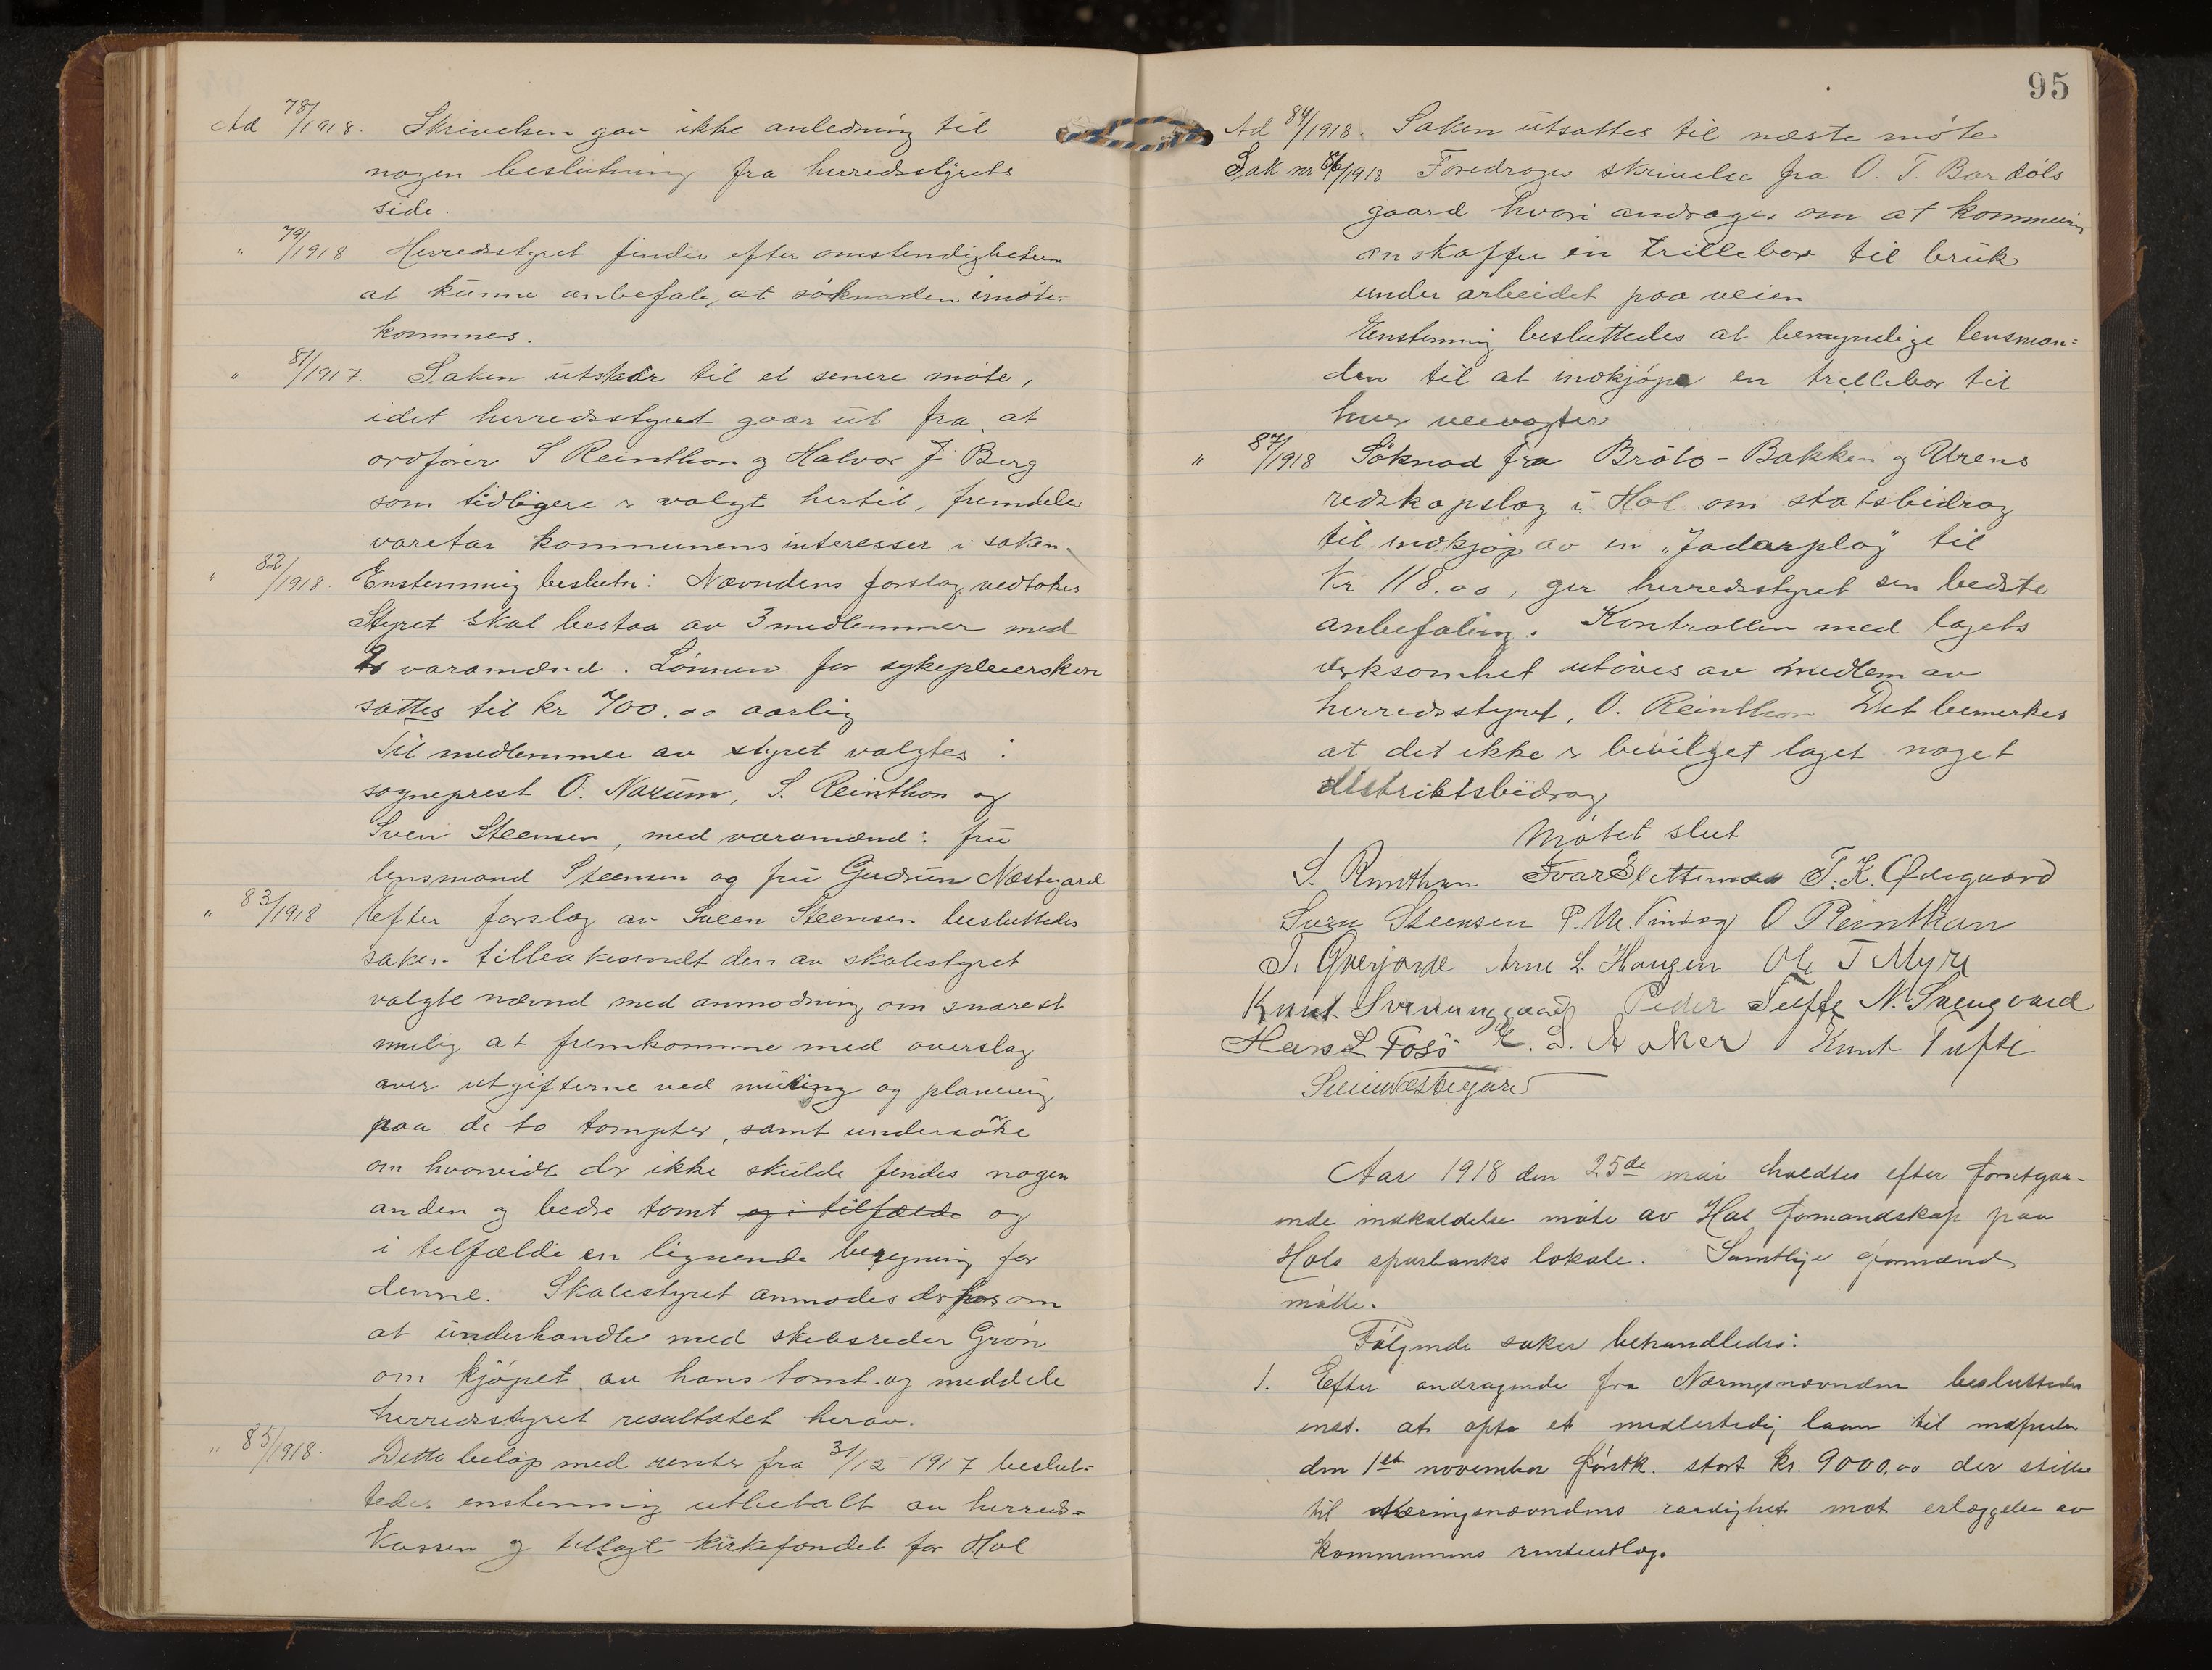 Ad 78/1918. Skrivelsen gav ikke anledning til
nogen beslutning fra herredsstyrets
side.
" 79/1918 Herredsstyret finder efter omstendigheten
at kunne anbefale, at söknaden imöte-
kommes.
" 81/1917. Saken utstaar til et senere möte,
idet herredsstyret gaar ut fra at
ordförer S Reinthon og Halvor J. Berg
som tidligere er valgt hertil, fremdeles
varetar kommunens interesser i saken.
" 82/1918. Enstemmig beslutn: Nævndens forslag vedtokes
Styret skal bestaa av 3 medlemmer med
2 varamænd. Lönnen for sykepleiersken
sattes til kr 700.00 aarlig
Til medlemmer av styret valgtes:
sogneprest O. Naxum, S. Reinthon og
Sven Steensen, med varamænd: fru
lensmand Steensen og fru Gudrun Nestegard
" 83/1918 Efter forslag av Sveen Steensen besluttedes
saken tilbakesendt den av skolestyret
valgte nævnd med anmodning om snarest
mulig at fremkomme med overslag
over utgifterne ved muring og planering
paa de to tompter, samt undersöke
om hvorvidt der ikke skulde findes nogen
anden og bedre tomt og i tilfælde og
i tilfælde en lignende beregning for
denne. Skolestyret anmodes derhos om
at underhandle med skibsreder Grön
om kjöpet av hans tomt og meddele
herredsstyret resultatet herav.
" 85/1918. Dette belöp med renter fra 31/12 1917 beslut-
tedes enstemmig utbetalt av herreds-
kassen og tillagt kirkefondet for Hol
95
Ad 84/1918. Saken utsattes til næste möte
Sak nr 86/1918 Foredroges skrivelse fra O. T. Bardöls
gaard hvori androges om at kommunen
anskaffer en trillebor til bruk
under arbeidet paa veien
Enstemmig besluttedes at bemyndige lensman=
den til at indkjöpe en trillebor til
hver veivogter
" 87/1918 Söknad fra Bröto-Bakken og Urens
redskapslag i Hol om statsbidrag
til indkjöp av en "Jadarplog" til
Kr 118.00, ger herredsstyret sin bedste
anbefaling. Kontrollen med lagets
virksomhet utöves av medlem av
herredsstyret, O. Reinthon Det bemerkes
at det ikke er bevilget laget noget
distriktsbidrag
Mötet slut
S. Reinthon Ivar Slettemoen T. K. Ødegaard
Sven Steensen P. M. O Reinthon
T. Gverjorde Arne L. Haugen Ole T Myre
Knut Sveinunggaard Peder Tufte N. Sveingaard
Hans L Foss E. L. Aaker Knut Tufte
Svein Nestegard
Aar 1918 den 25de mai holdtes efter forutgaa-
ende indkaldelse möte av Hol formandskap paa
Hols sparbanks lokale. Samtlige formænd
mötte.
Fölgende saker behandledes:
1. Efter andragende fra Næringsnævnden besluttedes
enst. at opta et midlertidig laan til indfrielse
den 1st november förstk. stort kr. 9000,00 der stilles
til Næringsnævndens raadighet mot erlæggelse av
kommunens renteutlæg.